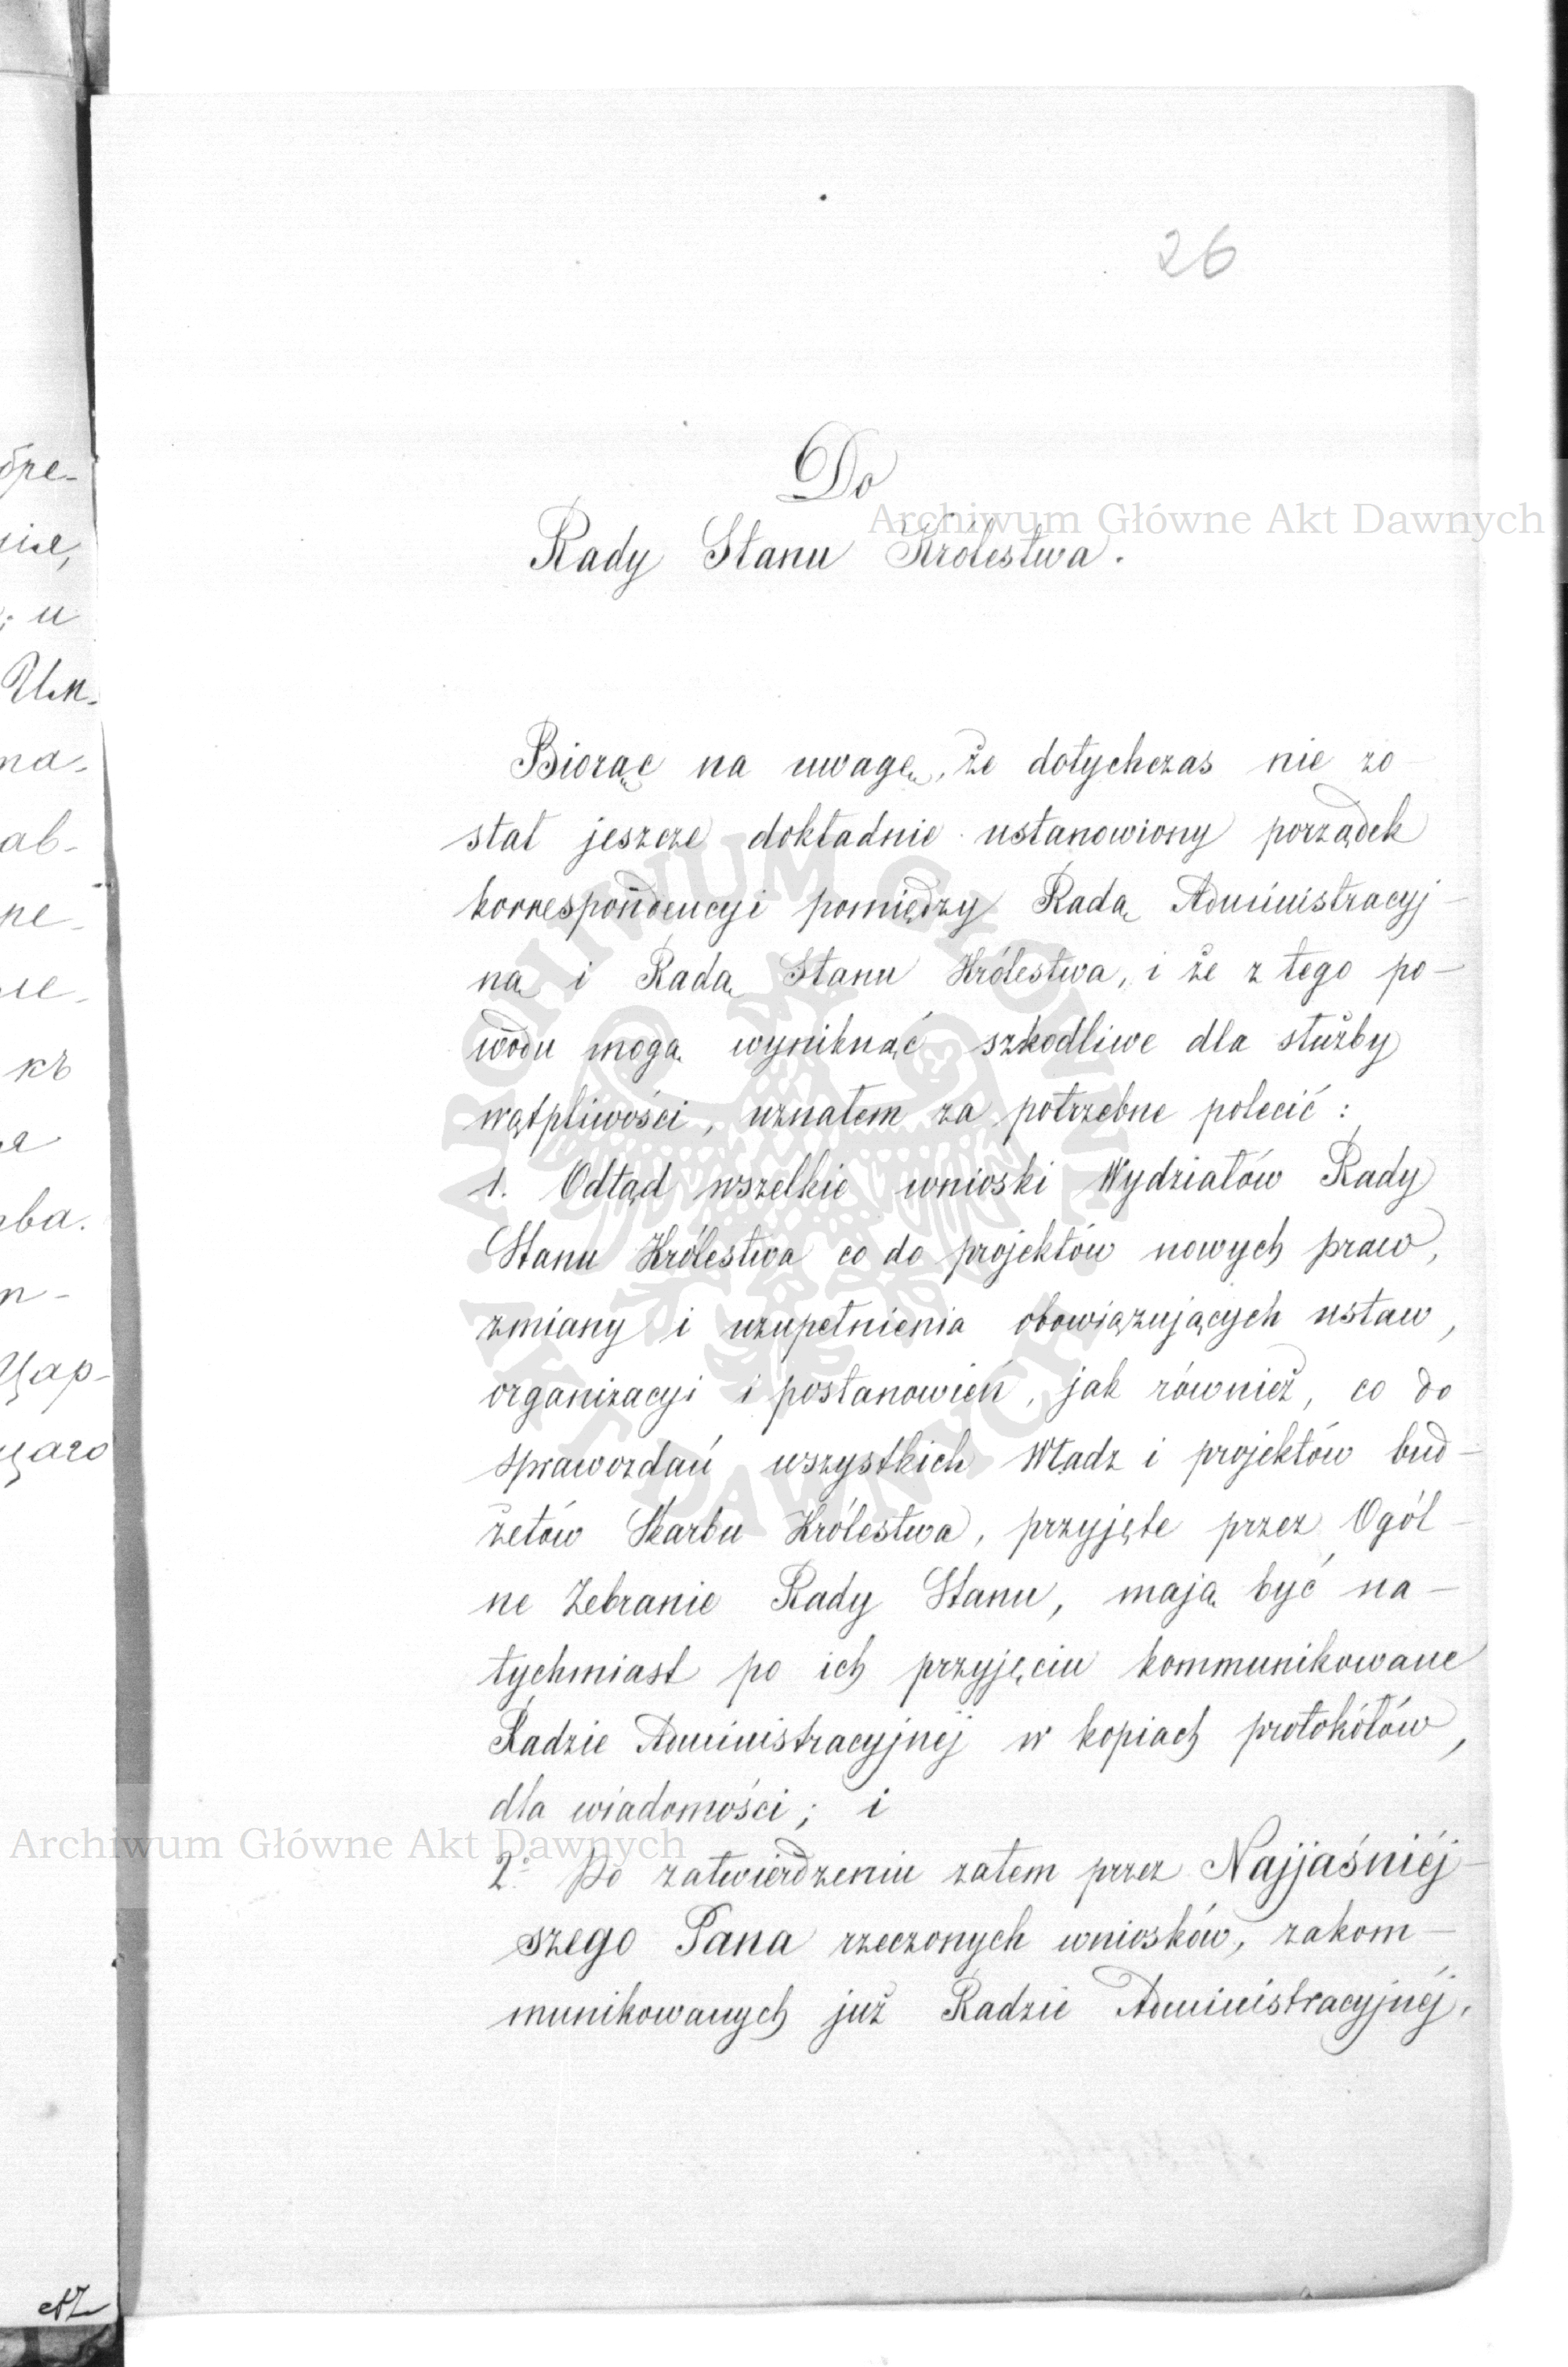 26
Do
Rady Stanu Królestwa.
Biorąc na uwagę, że dotychczas nie zo-
stał jeszcze dokładnie ustanowiony porządek
korrespondencyi pomiędzy Radą Administracyj-
ną i Radą Stanu Królestwa, i że z tego po-
wodu mogą wyniknąć szkodliwe dla służby
wątpliwości, uznałem za potrzebne polecić:
1. Odtąd wszelkie wnioski Wydziałów Rady
Stanu Królestwa co do projektów nowych praw,
zmiany i uzupełnienia obowiązujących ustaw,
organizacyi i postanowień, jak również, co do
sprawozdań wszystkich Władz i projektów bud-
żetów Skarbu Królestwa, przyjęte przez Ogól-
ne Zebranie Rady Stanu, mają być na-
tychmiast po ich przyjęciu kommunikowane
Radzie Administracyjnej w kopiach protokółów,
dla wiadomości; i
2. Po zatwierdzeniu zatem przez Najjaśniéj-
szego Pana rzeczonych wniosków, zakom-
munikowanych już Radzie Administracyjnéj,
бре-
ніе,
; и
Им-
та-
ав-
пе-
ле-
къ
я
ва.
п-
Цар-
щаго
Archiwum Główne Akt Dawnych
Archiwum Główne Akt Dawnych
ARCHIWUM GŁÓWNE
AKT DAWNYCH